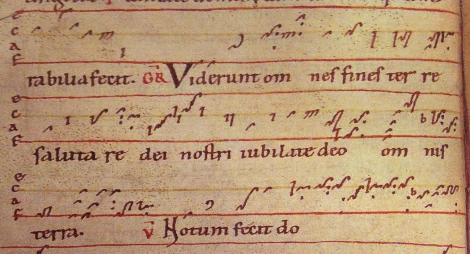 rabilia fecit. GR Viderunt om nes fines ter re
saluta re dei nostri iubilate deo om nis
terra. V Notum fecit do